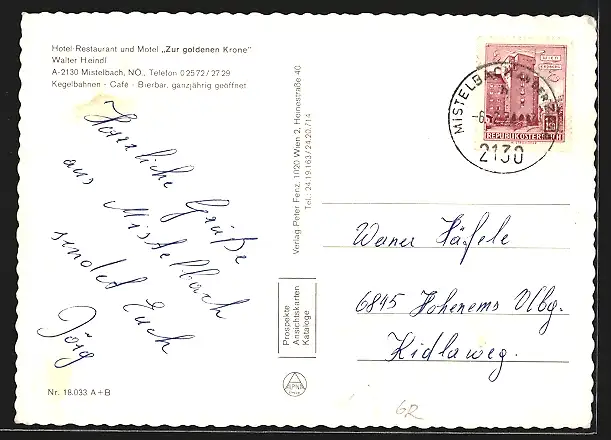 Hotel-Restaurant und Motel „Zur goldenen Krone"
Walter Heindl
A-2130 Mistelbach, NÖ., Telefon 0 25 72 / 27 29
Kegelbahnen - Café - Bierbar, ganzjährig geöffnet
Herzliche Grüße
aus Mistelbach
sendet Euch
Jörg
Nr. 18.033 A+B
Verlag Peter Fenz, 1020 Wien 2, Heinestraße 40
Tel.: 24.19.163/24.20.714
Prospekte
Ansichtskarten
Kataloge
MISTELBACH AN DER
2130
REPUBLIK ÖSTERREICH
Werner Häfele
6845 Hohenems Vlbg.
Kidlaweg.
GR